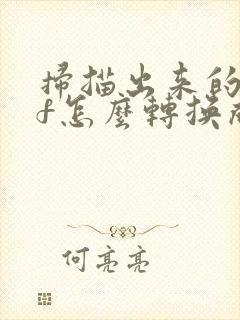 掃描出来的
f怎麼轉換成
何亮亮